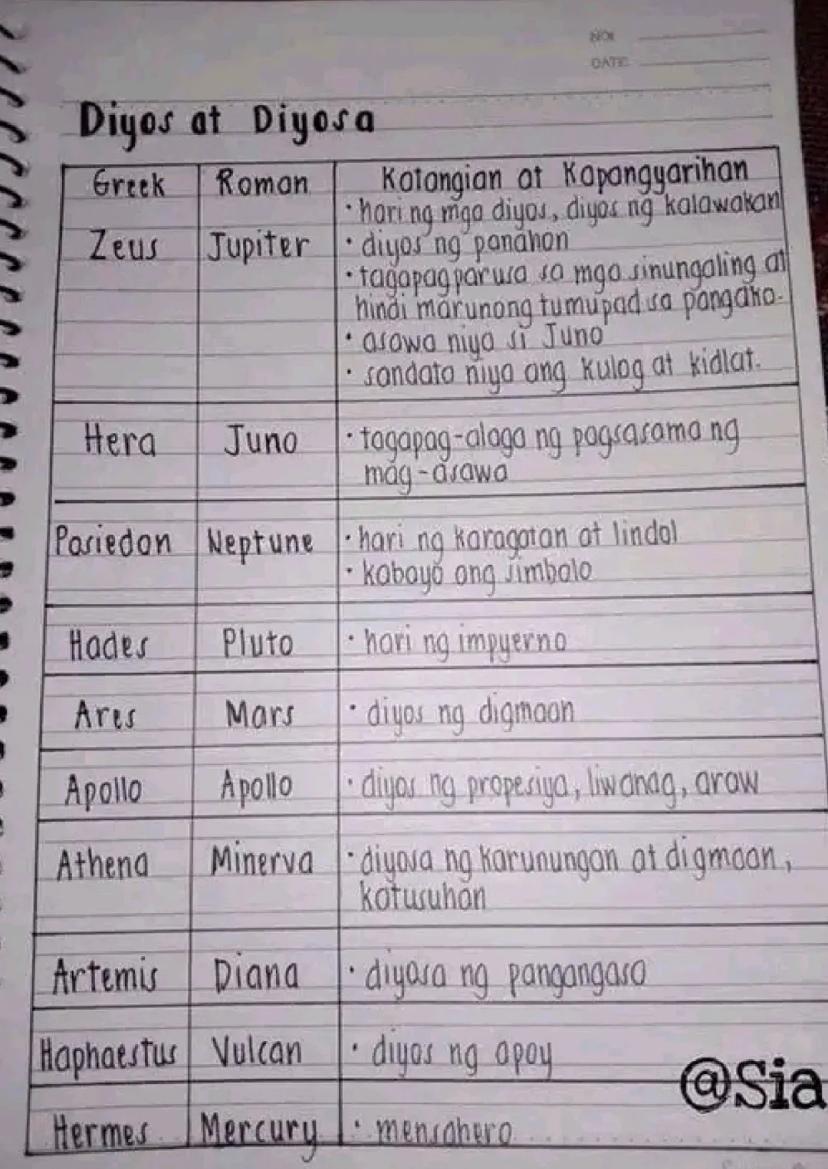 NO:
DATE:
Diyos at Diyosa
Greek Roman Katangian at Kapangyarihan
Zeus Jupiter • hari ng mga diyos, diyos ng kalawakan
• diyos ng panahon
• tagapagparusa sa mga sinungaling at
hindi marunong tumupad sa pangako.
• asawa niya si Juno
• sandata niya ang kulog at kidlat.
Hera Juno • tagapag-alaga ng pagsasama ng
mag-asawa
Posiedon Neptune • hari ng karagatan at lindol
• kabayo ang simbalo
Hades Pluto • hari ng impyerno
Ares Mars • diyos ng digmaan
Apollo Apollo • diyos ng propesiya, liwanag, araw
Athena Minerva • diyosa ng karunungan at digmaan,
katusuhan
Artemis Diana • diyosa ng pangangaso
Haphaestus Vulcan • diyos ng apoy
@Sia
Hermes Mercury • mensahero